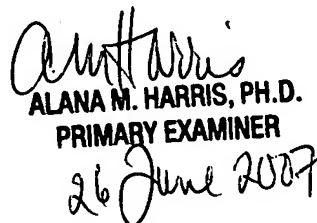 AM Harris
ALANA M. HARRIS, PH.D.
PRIMARY EXAMINER
26 June 2007